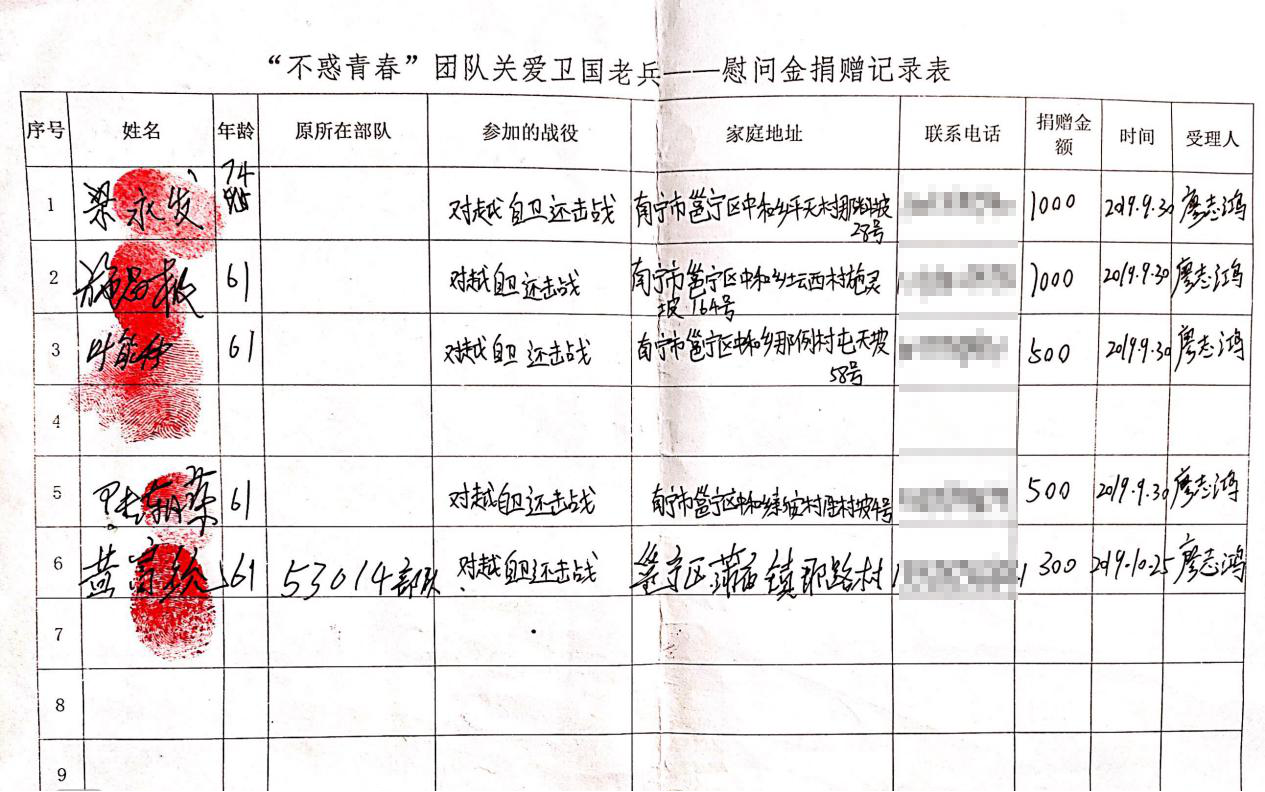 “不惑青春”团队关爱卫国老兵——慰问金捐赠记录表
序号 姓名 年龄 原所在部队 参加的战役 家庭地址 联系电话 捐赠金额 时间 受理人
1 梁永发 74 对越自卫还击战 南宁市邕宁区中和乡平天村那 坡28号 1000 2019.9.30 廖志鸿
2 施 61 对越自卫还击战 南宁市邕宁区中和乡坛西村施灵坡164号 1000 2019.9.30 廖志鸿
3 叶能 61 对越自卫还击战 南宁市邕宁区中和乡那例村屯天坡58号 500 2019.9.30 廖志鸿
4
5 61 对越自卫还击战 南宁市邕宁区中和 村 村坡4号 500 2019.9.30 廖志鸿
6 黄 61 53014部队 对越自卫还击战 邕宁区蒲庙镇那路村 300 2019.10.25 廖志鸿
7
8
9